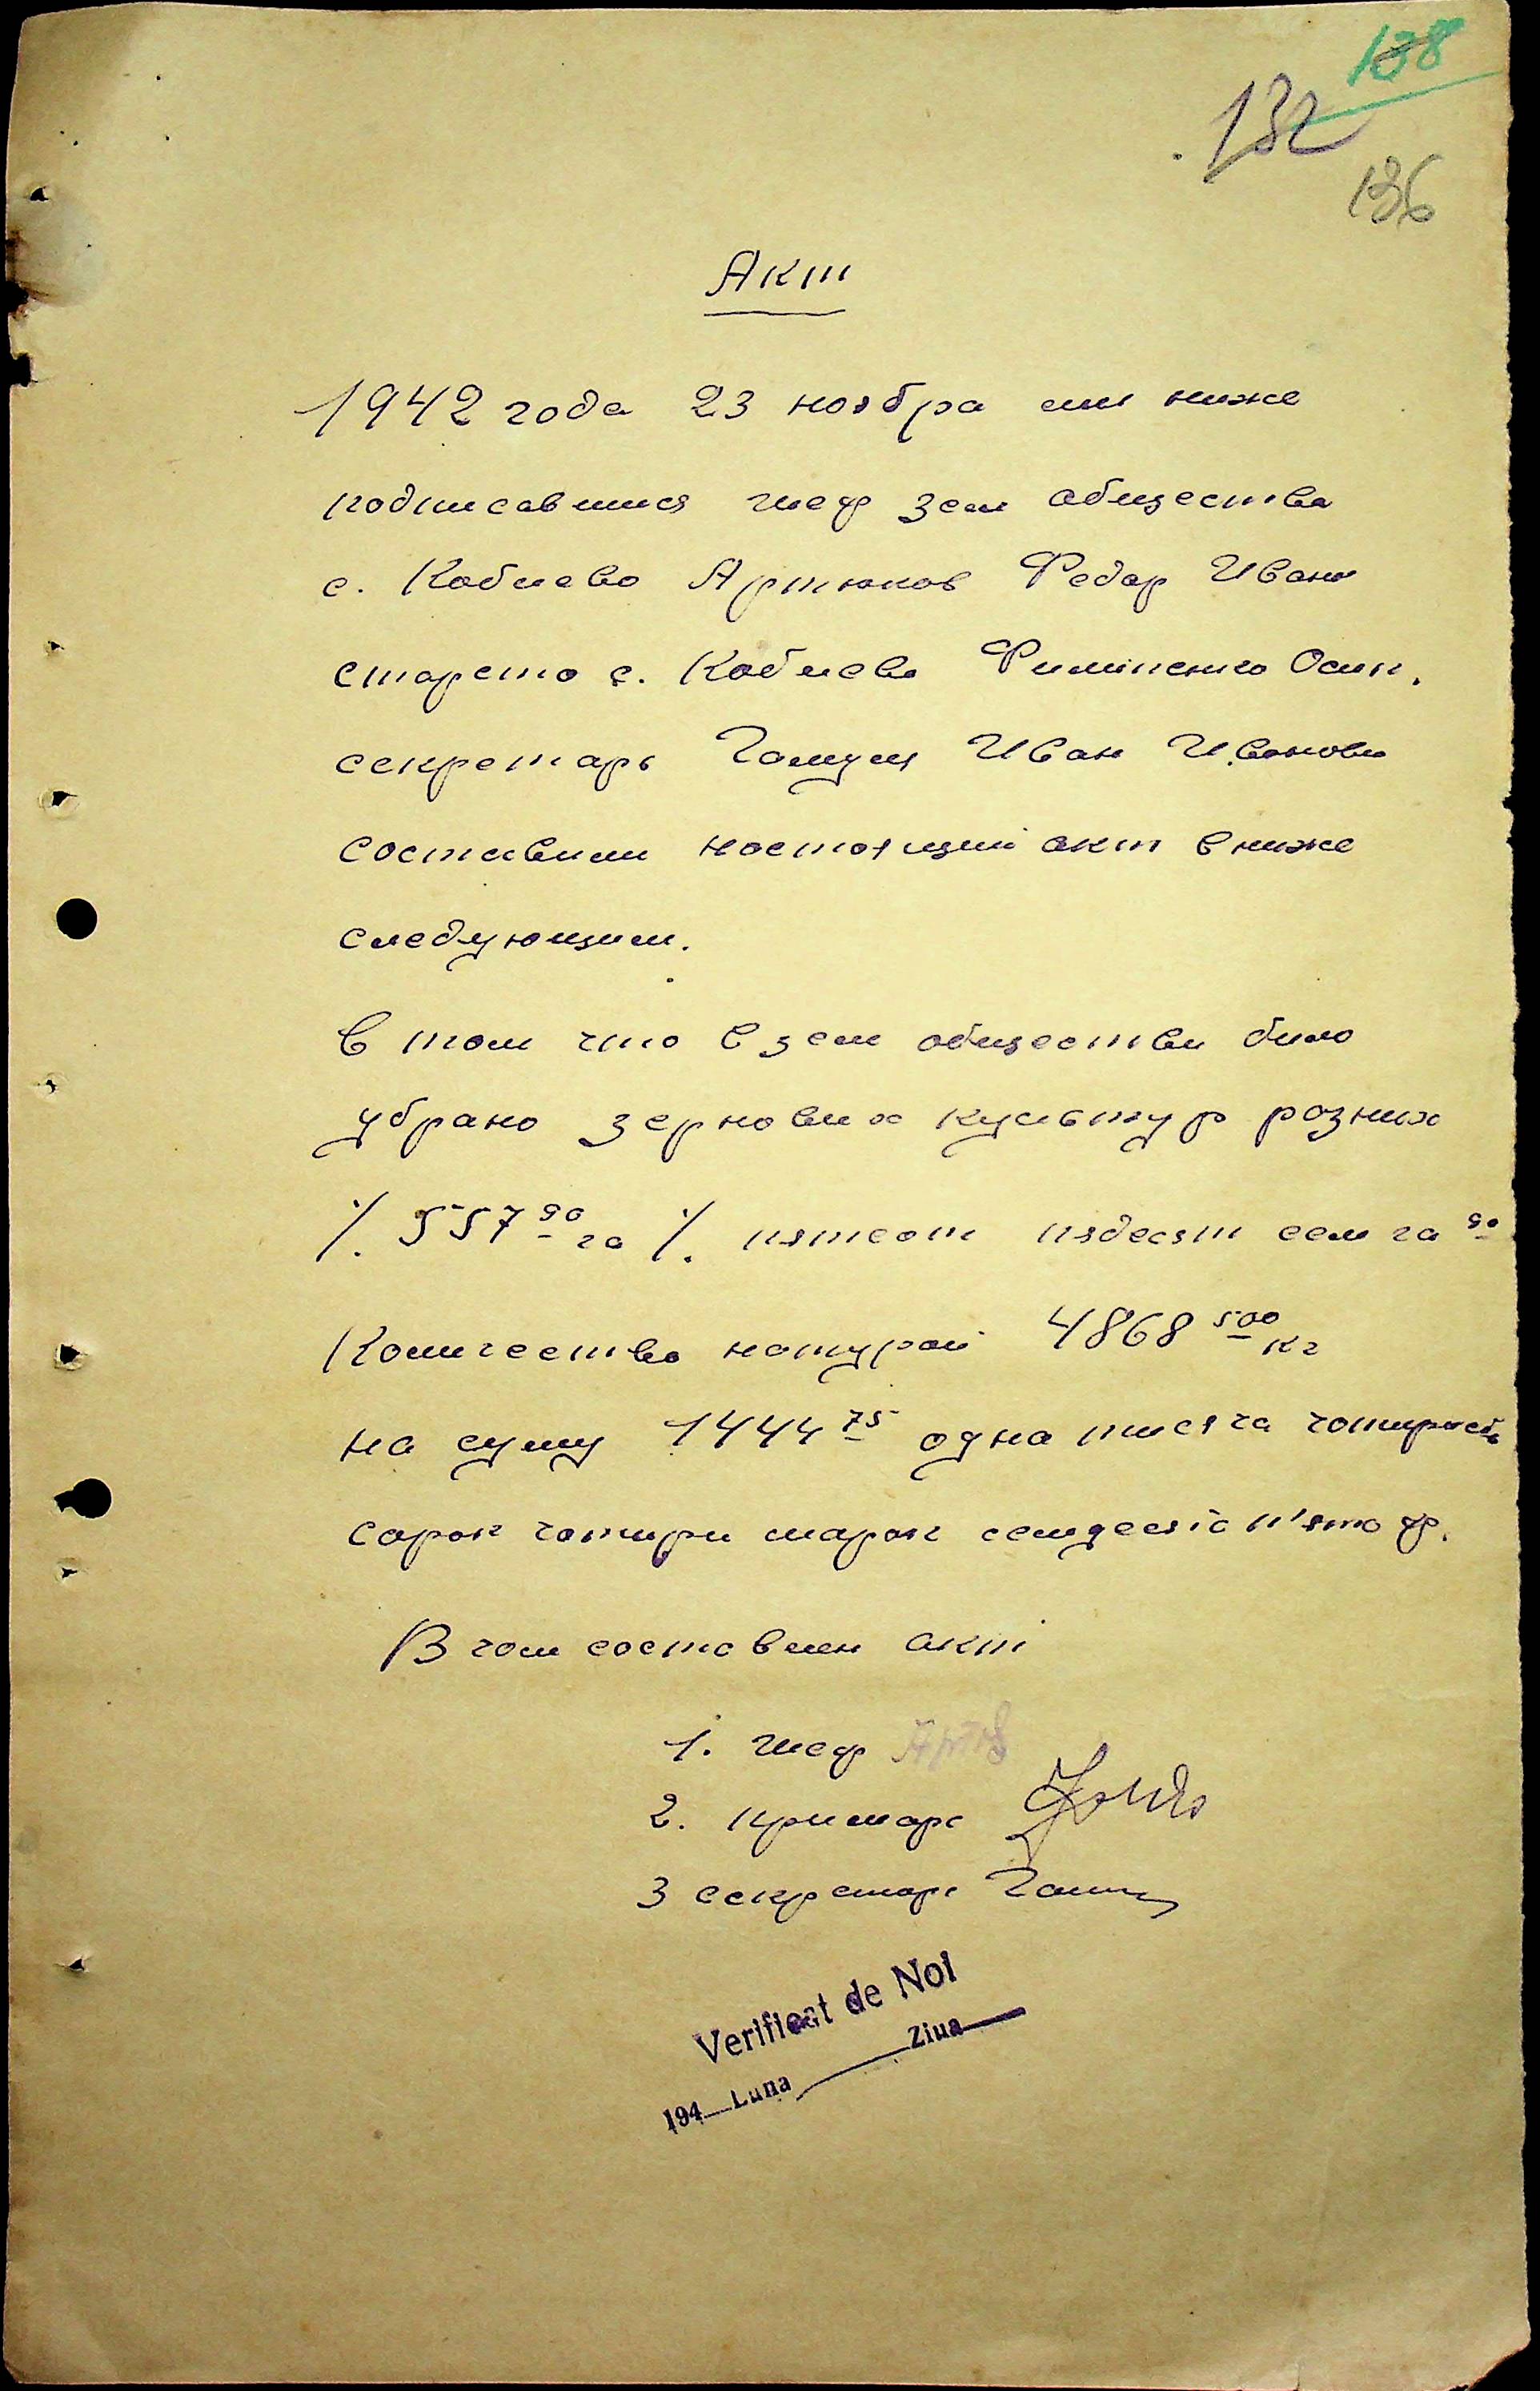 138
132
136
Акт
1942 года 23 ноября ми ниже
подписавшися шеф зем общества
с. Коблево Артюков Федор Ивано
старста с. Коблево Филипенко Осип.
секретарь Иван Иванови
составили настоящий акт в ниже
следующим.
В том что в зем обществи било
убрано зернових культур розних
./. 557 90 га ./. пятсот пядесят сем га 90
Количество натурой 4868 500 кг
на суму 1444 75 одна тисяча чотирист
сорок чотири марок семдесят п'ять ф.
В чом составлен акт
1. шеф Артюк
2. примарь
3 секретарь
Verificat de Noi
194 Luna Ziua